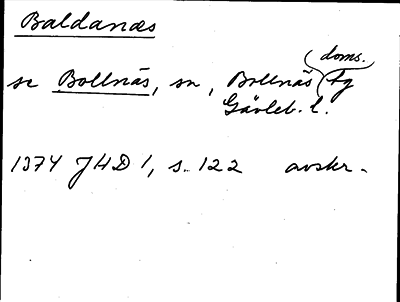 Baldanæs
doms.
se Bollnäs, sn, Bollnäs tg
Gävleb. l.
1374 JHD 1, s. 122 avskr.